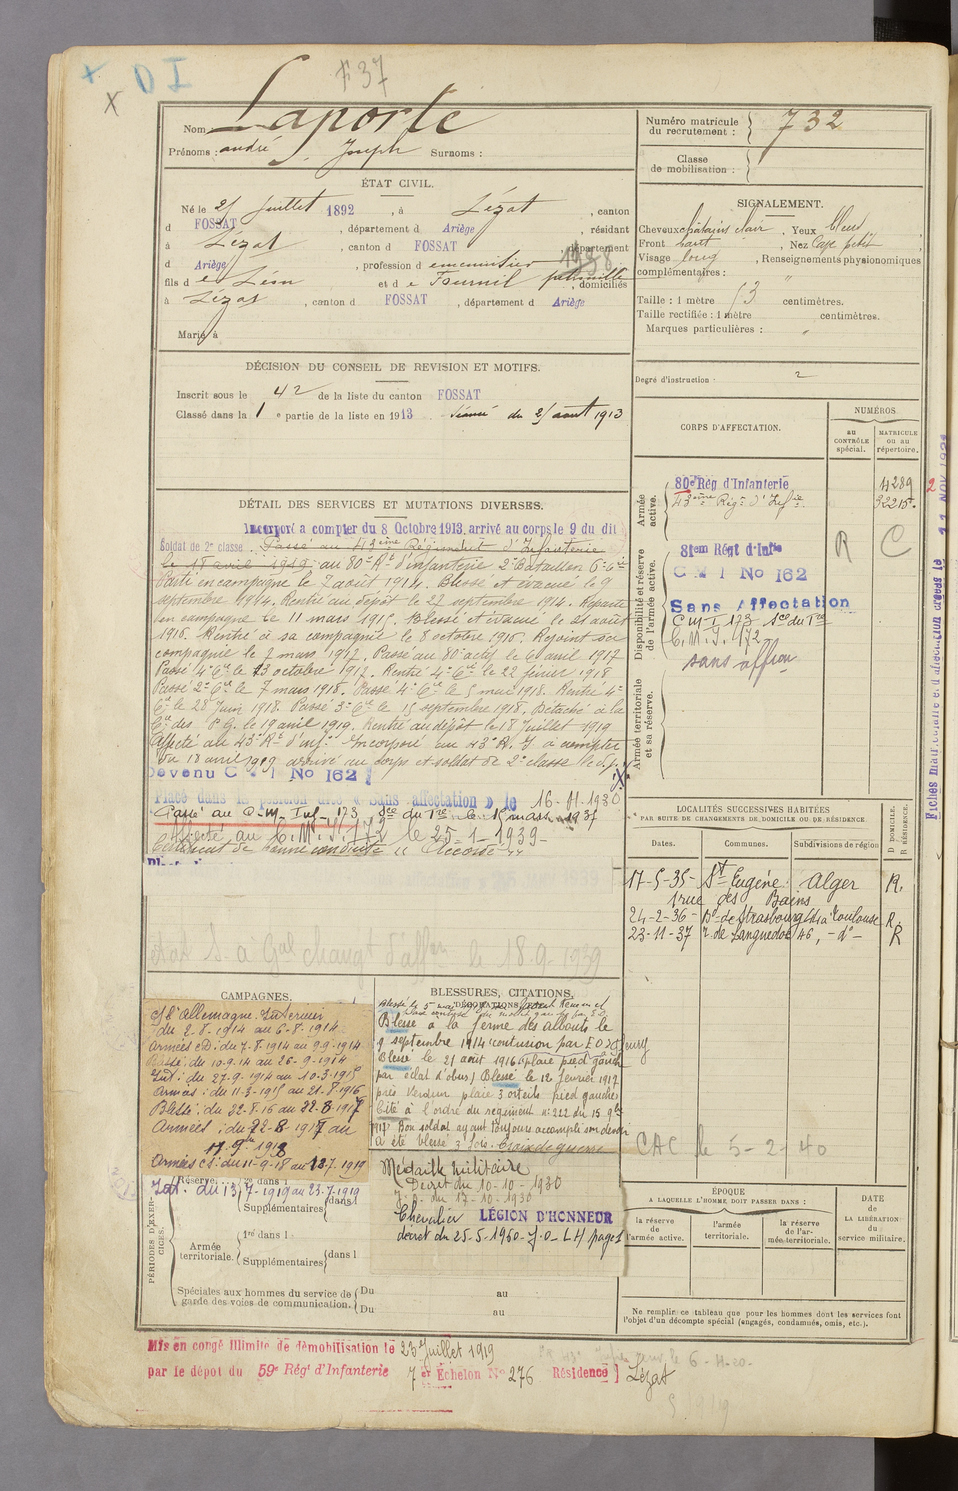 DI
F37
Nom Laporte
Prénoms : andré, Joseph Surnoms :
Numéro matricule
du recrutement : 732
Classe
de mobilisation :
ÉTAT CIVIL.
Né le 25 Juillet 1892, à Lézat, canton
d FOSSAT, département d Ariège, résidant
à Lézat, canton d FOSSAT, département
d Ariège, profession d e menuisier
fils d e Léon et d e Fournil pétronille, domiciliés
à Lézat, canton d FOSSAT, département d Ariège
Marié à
SIGNALEMENT.
Cheveux châtains clair, Yeux bleu
Front haut, Nez
Visage long, Renseignements physionomiques
complémentaires : "
Taille : 1 mètre 73 centimètres.
Taille rectifiée : 1 mètre centimètres.
Marques particulières : "
DÉCISION DU CONSEIL DE REVISION ET MOTIFS.
Inscrit sous le n° 42 de la liste du canton FOSSAT
Classé dans la 1 e partie de la liste en 1913 séance du 25 août 1913
Degré d'instruction : 2
CORPS D'AFFECTATION.
NUMÉROS
au
CONTRÔLE
spécial.
MATRICULE
ou au
répertoire.
Armée
active.
80e Rég d'Infanterie 4289
43ème Régt d'Infie 32215
Disponibilité et réserve
de l'armée active.
81em Régt d'Infie R C
C M I No 162
Sans Affectation
C M I 173 Son du Tre
C. M. I. 172
sans affon
Armée territoriale
et sa réserve.
DÉTAIL DES SERVICES ET MUTATIONS DIVERSES.
Incorporé a compter du 8 Octobre 1913. arrivé au corps le 9 du dit
Soldat de 2e classe. Passé au 43ème Régiment d'Infanterie
le 18 avril 1919. au 80e Rt d'infanterie 2e Bataillon 6e Cie
Parti en campagne le 7 août 1914. Blessé et évacué le 9
septembre 1914. Rentré au dépôt le 27 septembre 1914. Reparti
en campagne le 11 mars 1915. Blessé et évacué le 21 août
1916. Rentré à sa compagnie le 8 octobre 1916. Rejoint sa
compagnie le 7 mars 1917. Passé au 80e actif le 6 avril 1917
Passé 4e Cie le 13 octobre 1917. Rentré 4e Cie le 22 février 1918
Passé 2e Cie le 7 mars 1918. Passé 4e Cie le 5 mai 1918. Rentré 4e
Cie le 28 Juin 1918. Passé 3e Cie le 15 septembre 1918. Détaché à la
Cie des P. G. le 19 avril 1919. Rentré au dépôt le 18 Juillet 1919
Affecté au 43e Rt d'inf. Incorporé au 43e R. I. à compter
du 18 avril 1919 arrivé au corps et soldat de 2e classe le d. j.
Devenu C M I No 162
Placé dans la position dite « Sans affectation » le 16-11-1930
Passé au C-M-Inf-173 Son du Tre le 15 mars 1937
au C. M. I. 172 le 25-1-1939-
Certificat de bonne conduite "Accordé"
le 18-9-1939
LOCALITÉS SUCCESSIVES HABITÉES
PAR SUITE DE CHANGEMENTS DE DOMICILE OU DE RÉSIDENCE.
Dates. Communes. Subdivisions de région
D DOMICILE.
R RÉSIDENCE.
17-5-35- St Eugène. Alger R.
1 rue des Bains
24-2-36- Bd de Strasbourg Toulouse R.
23-11-37 r. de Languedoc 46, -do- R
CAMPAGNES.
C/l'Allemagne. Intérieur
du 2-8-1914 au 6-8-1914.
Armées CD: du 7-8-1914 au 9-9-1914
Blessé: du 10-9-14 au 26-9-1914
Int: du 27-9-1914 au 10-3-1915
Armées: du 11-3-1915 au 21-8-1916
Blessé: du 22-8-16 au 22-8-1917
Armées: du 22-8-1917 au
11-9bre 1918
Armées CS: du 11-9-18 au 12-7-1919
Int. du 13-7-1919 au 23-7-1919
BLESSURES, CITATIONS,
DÉCORATIONS, ETC.
Blessé à la ferme des abouts le
9 septembre 1914 (contusion par E O) Fleury
Blessé le 21 août 1916 (plaie pied gauche
par éclat d'obus) Blessé le 12 février 1917
près Verdun plaie 3 orteils pied gauche
Cité à l'ordre du régiment n° 222 du 15 9bre
1917 Bon soldat ayant toujours accompli son devoir
a été blessé 3 fois. Croix de guerre
Médaille militaire
Décret du 10-10-1930
J.O. du 17-10-1930
Chevalier LÉGION D'HONNEUR
décret du 25-5-1960-J-O-LH page 1
CAC le 5-2-40
PÉRIODES D'EXERCICES.
Réserve. 1re dans l
Supplémentaires dans l
Armée
territoriale.
1re dans l
Supplémentaires dans l
Spéciales aux hommes du service de
garde des voies de communication.
Du au
Du au
ÉPOQUE
A LAQUELLE L'HOMME DOIT PASSER DANS :
la réserve
de l'armée active.
l'armée
territoriale.
la réserve
de l'armée territoriale.
DATE
de
LA LIBÉRATION
du
service militaire.
Ne remplir ce tableau que pour les hommes dont les services font
l'objet d'un décompte spécial (engagés, condamnés, omis, etc.).
Mis en congé illimité de démobilisation le 23 Juillet 1919
par le dépot du 59e Régt d'Infanterie 7 er Echelon No 276 Résidence Lézat
Fiches matriculaire et d'affectation créées le 11 NOV 1931